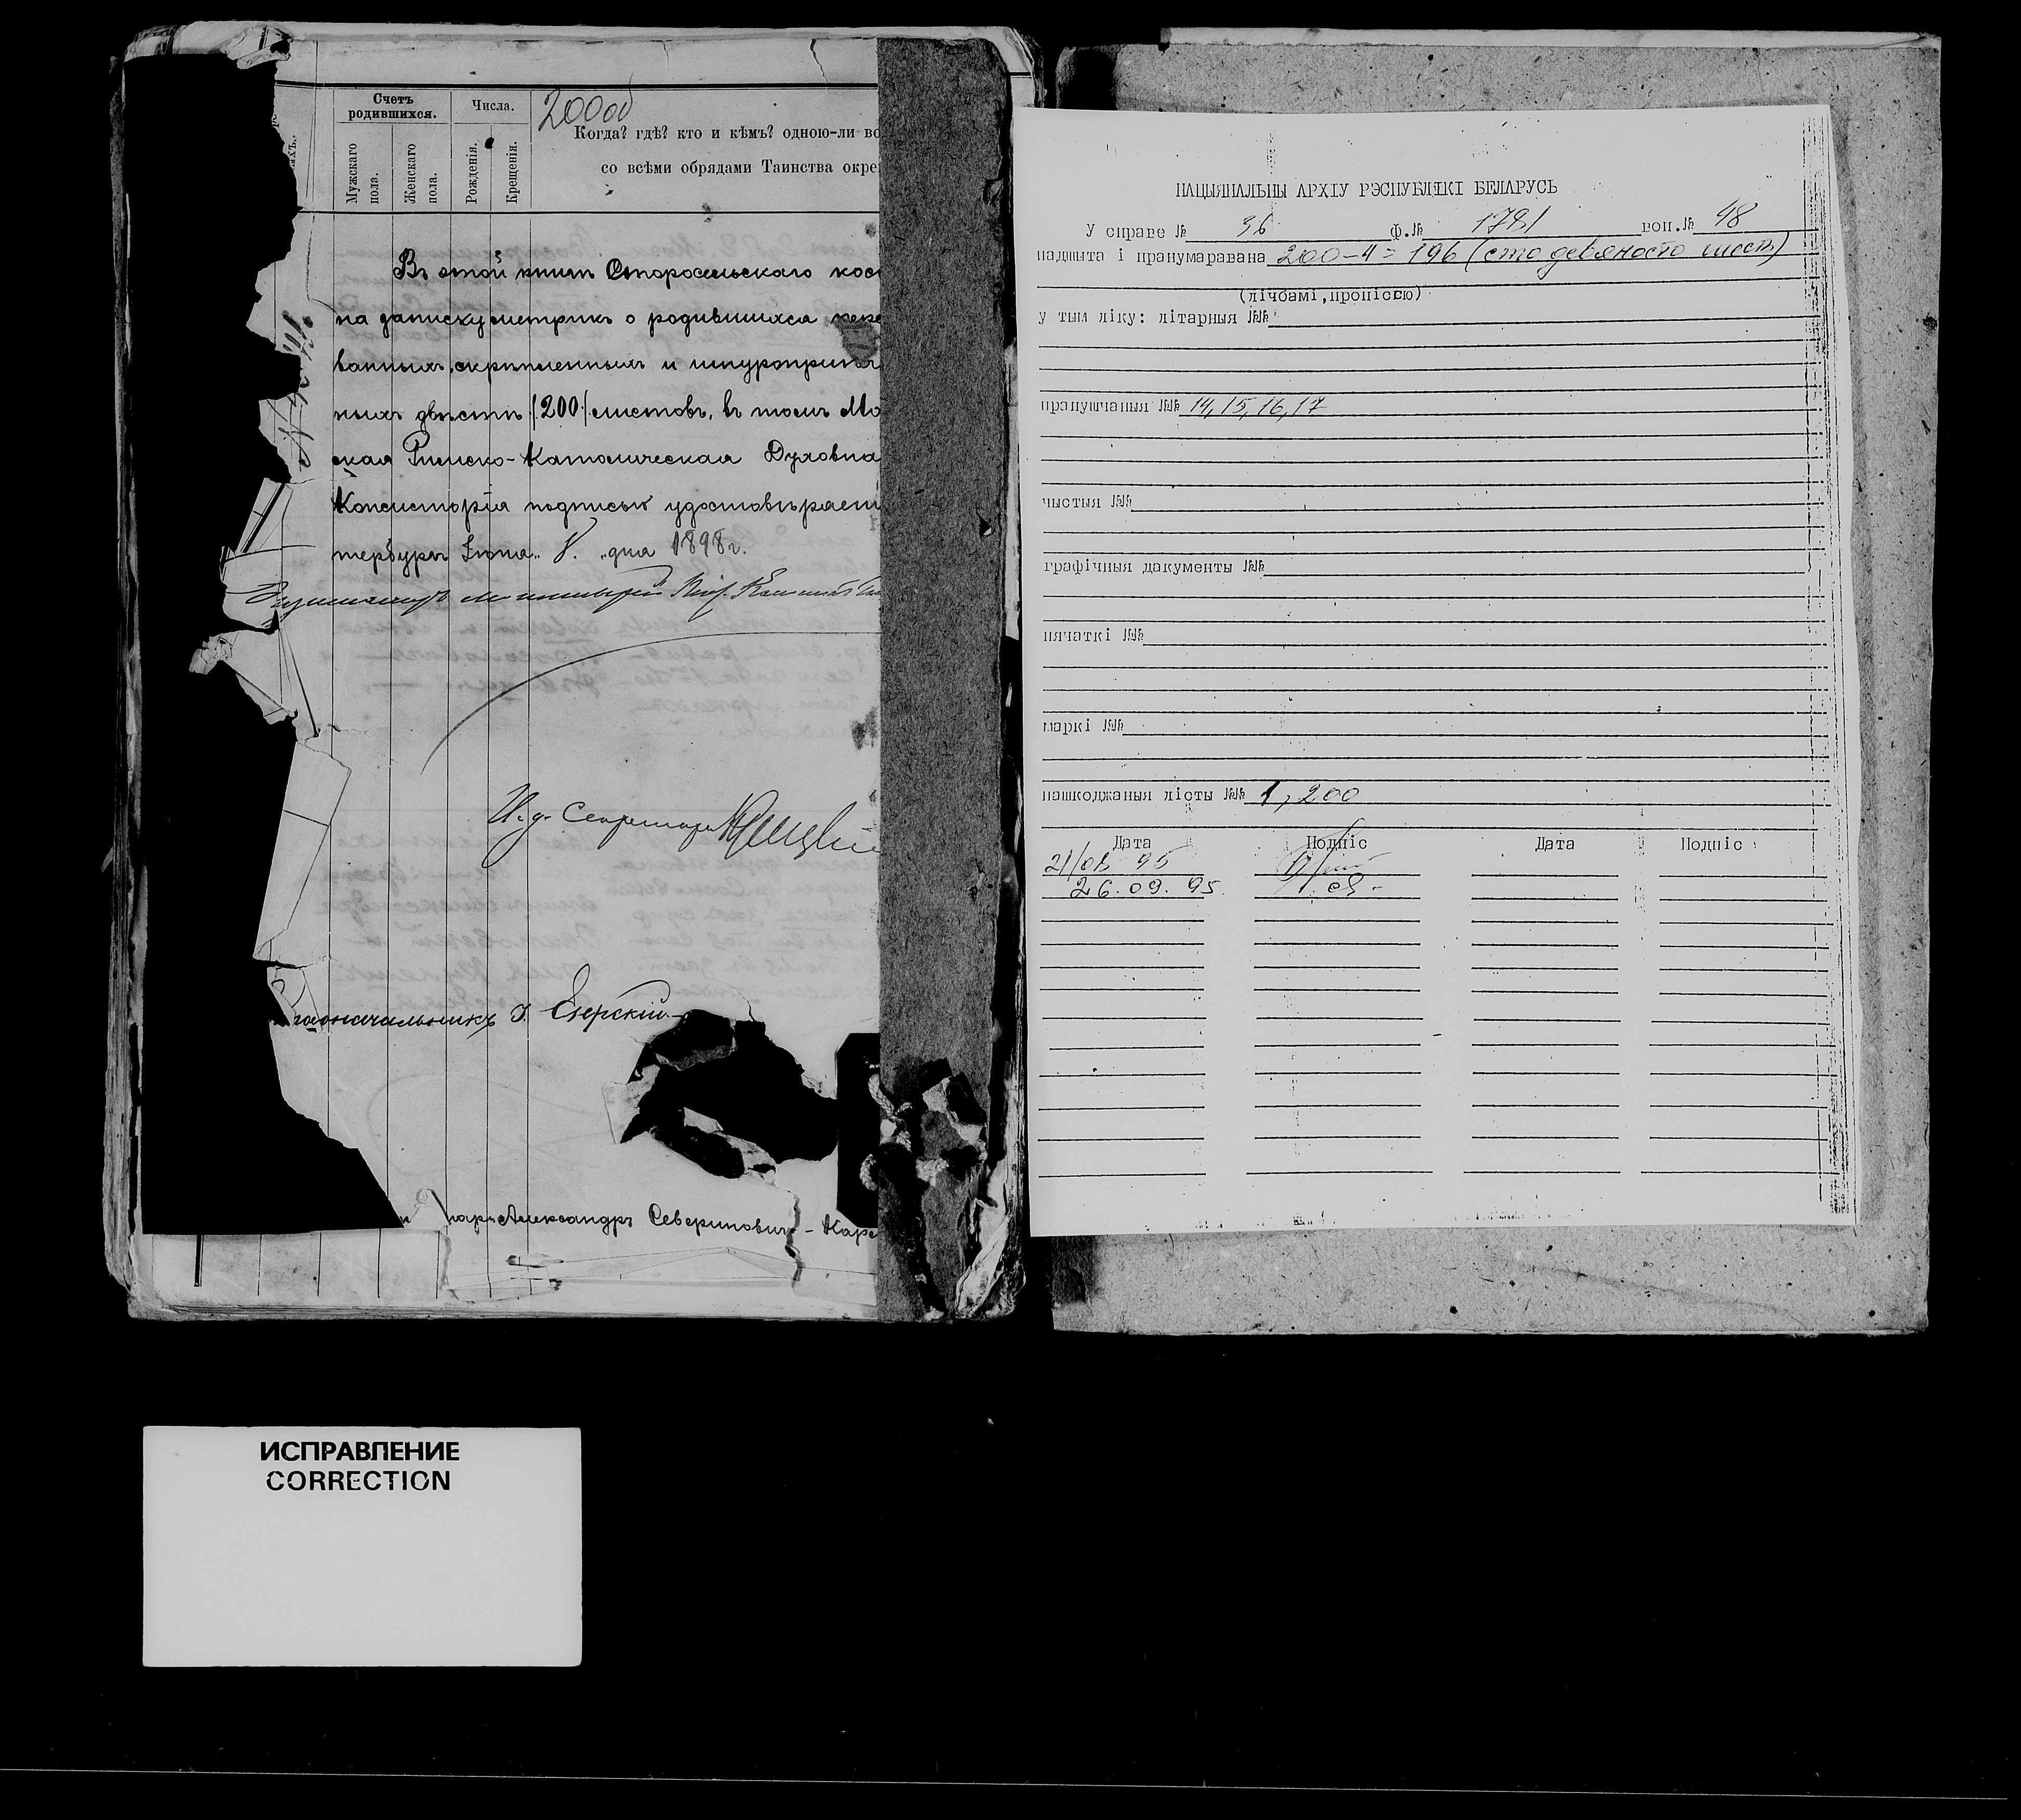 200об
Счетъ
родившихся.
Числа.
Мужскаго
пола.
Женскаго
пола.
Рожденія.
Крещенія.
Когда? гдѣ? кто и кѣмъ? одною-ли во
со всѣми обрядами Таинства окре
Въ этой книгѣ Старосельскаго кос
на записку метрикъ о родившихся
ванныхъ, скрѣпленныхъ и шнуроприпеч
ныхъ двѣсти /200/ листовъ, въ томъ Мо
ская Римско-Католическая Духовна
Консисторія подписью удостовѣряет
тербургъ Іюня „ 8. „ дня 1898 г.
И. д. Секретаря
толоначальникъ І. Езерскій
Александръ Севериновичъ - Каре
НАЦЫЯНАЛЬНЫ АРХІУ РЭСПУБЛІКІ БЕЛАРУСЬ
У справе № 36 ф.№ 1781 воп.№ 48
падшыта і пранумаравана 200-4=196 (сто девяносто шесть)
(лічбамі, пропіссю)
у тым ліку: літарныя №№
прапушчаныя №№ 14, 15, 16, 17
чыстыя №№
графічныя дакументы №№
пячаткі №№
маркі №№
пашкоджаныя лісты №№ 1, 200
Дата Подпіс Дата Подпіс
26.09.95
ИСПРАВЛЕНИЕ
CORRECTION